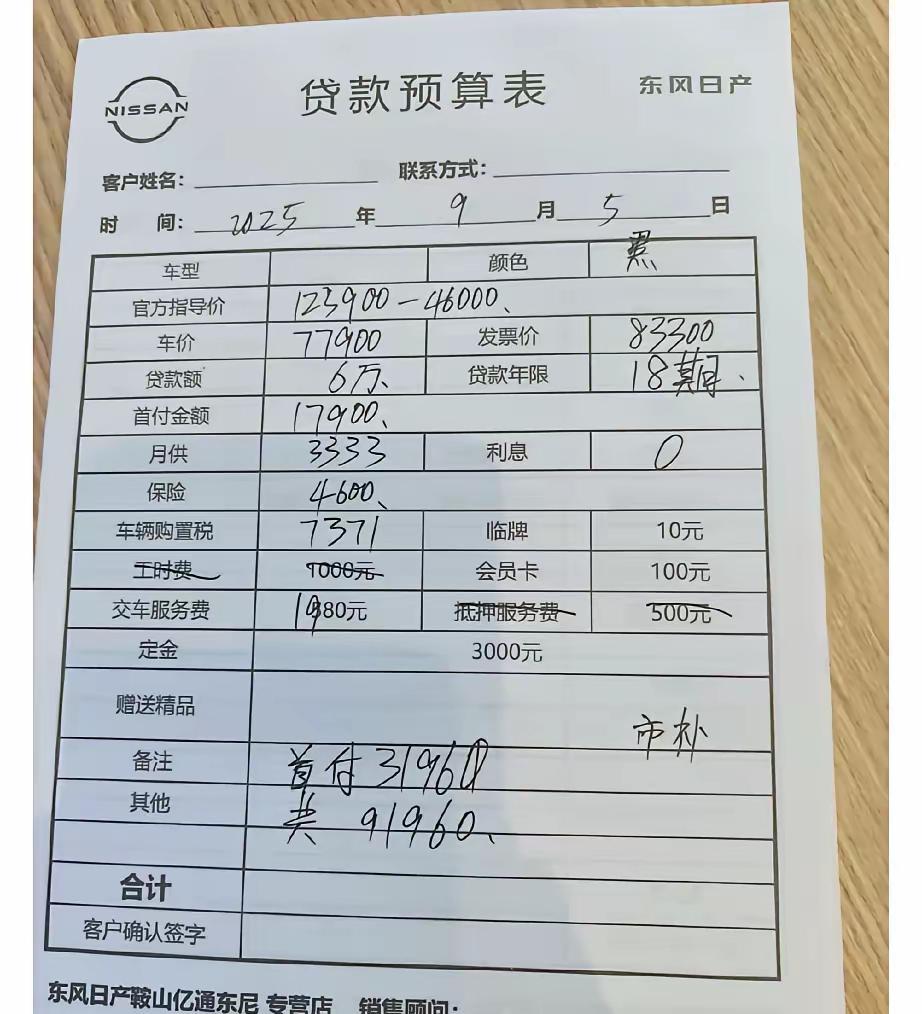 NISSAN 贷款预算表 东风日产
客户姓名: 联系方式:
时 间: 2025 年 9 月 5 日
车型 颜色 黑
官方指导价 123900-46000、
车价 77900 发票价 83300
贷款额 6万、 贷款年限 18期、
首付金额 17900、
月供 3333 利息 0
保险 4600、
车辆购置税 7371 临牌 10元
工时费 1000元 会员卡 100元
交车服务费 1980元 抵押服务费 500元
定金 3000元
赠送精品
市补
备注 首付31960
其他 共 91960、
合计
客户确认签字
东风日产鞍山亿通东尼 专营店 销售顾问: